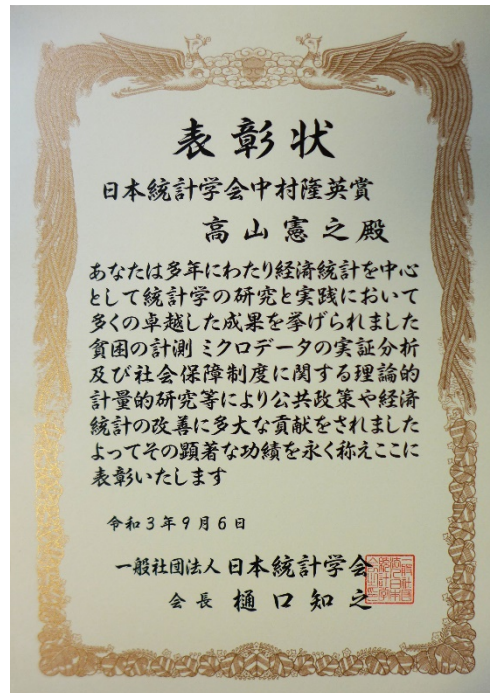 表彰状
日本統計学会中村隆英賞
高山憲之殿
あなたは多年にわたり経済統計を中心
として統計学の研究と実践において
多くの卓越した成果を挙げられました
貧困の計測 ミクロデータの実証分析
及び社会保障制度に関する理論的
計量的研究等により公共政策や経済
統計の改善に多大な貢献をされました
よってその顕著な功績を永く称えここに
表彰いたします
令和3年9月6日
一般社団法人 日本統計学会
会長 樋口知之